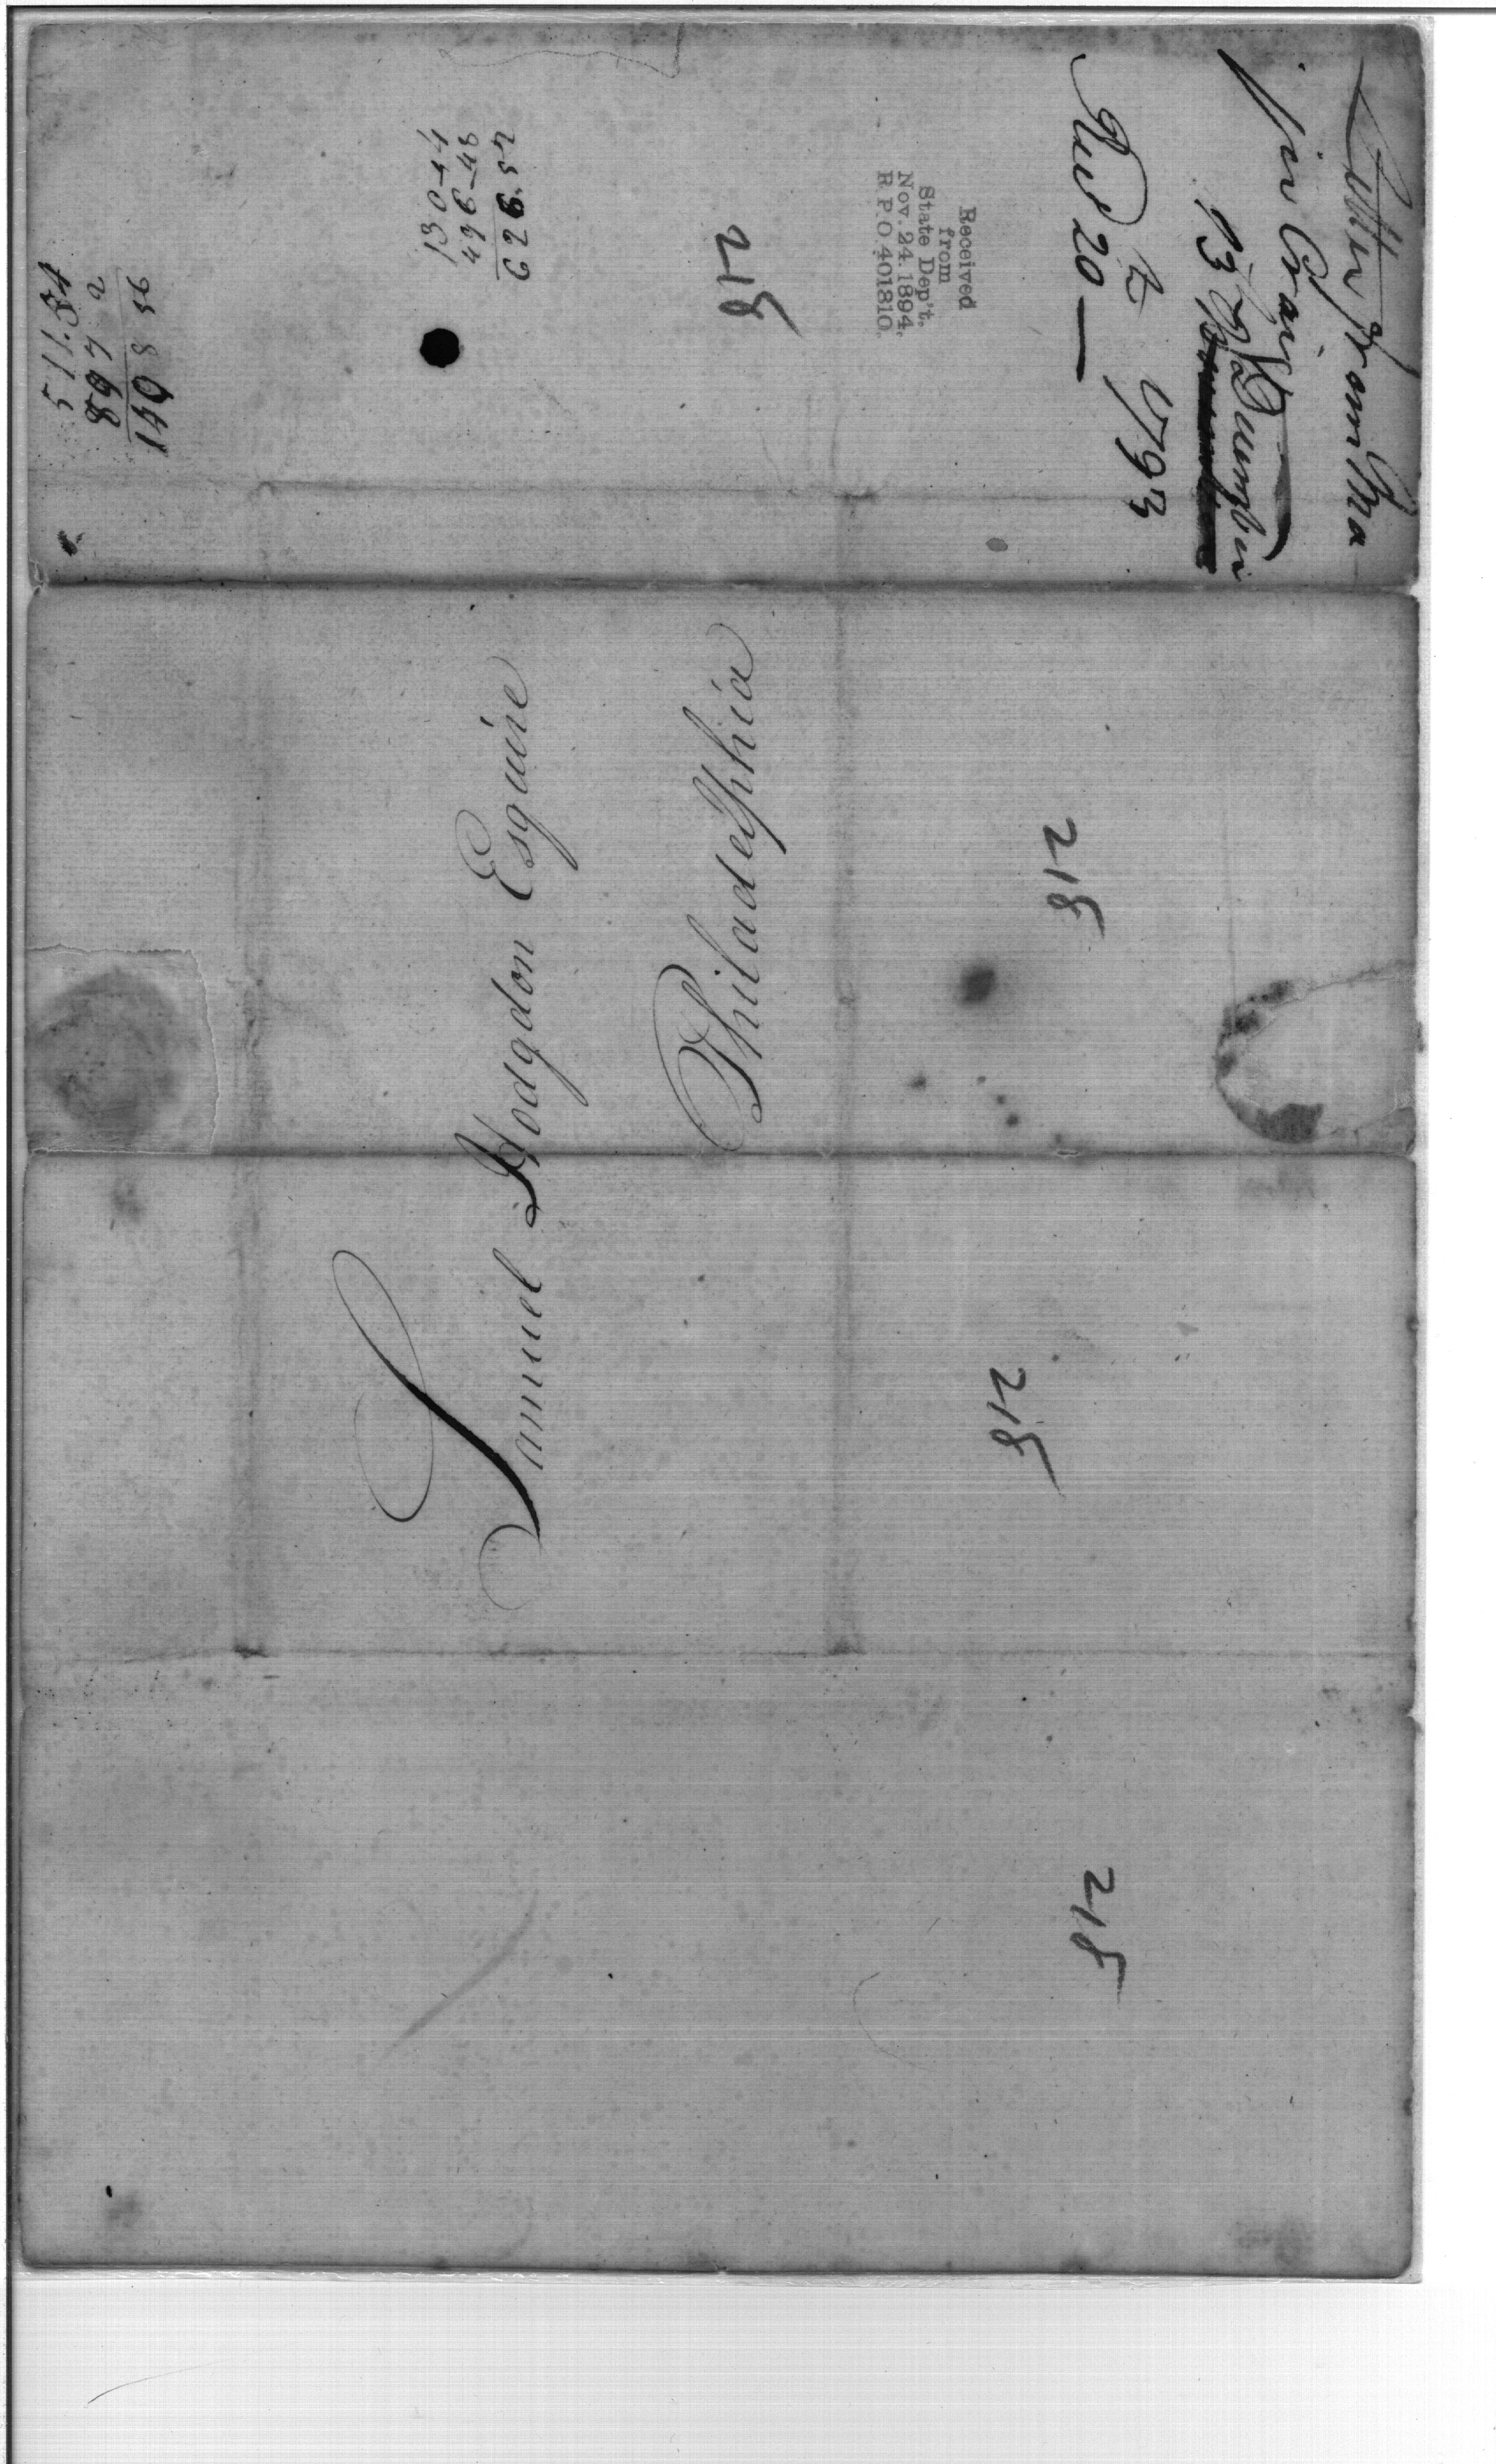 Letter from Ma
jor Craig
13 December
1793
Recd 20 —
Received
from
State Dep't.
Nov. 24. 1894.
R.P.O. 401810.
218
130-44
496-48
Samuel Hodgdon Esquire
Philadelphia
218
218
218